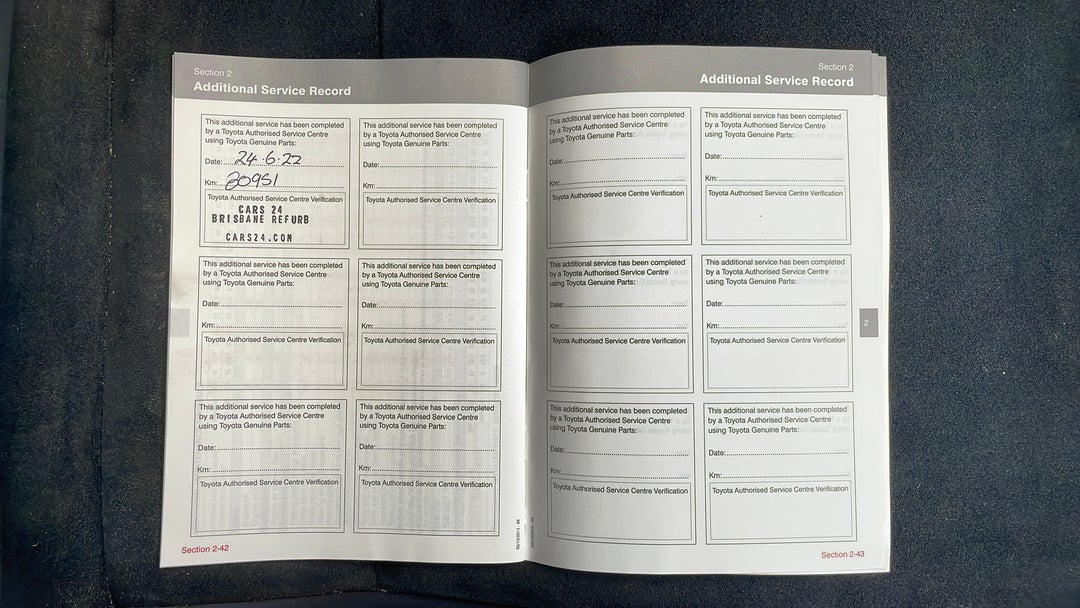 Section 2
Additional Service Record
This additional service has been completed
by a Toyota Authorised Service Centre
using Toyota Genuine Parts:
Date: 24.6.22
Km: 20951
Toyota Authorised Service Centre Verification
CARS 24
BRISBANE REFURB
CARS24.COM
This additional service has been completed
by a Toyota Authorised Service Centre
using Toyota Genuine Parts:
Date:
Km:
Toyota Authorised Service Centre Verification
This additional service has been completed
by a Toyota Authorised Service Centre
using Toyota Genuine Parts:
Date:
Km:
Toyota Authorised Service Centre Verification
This additional service has been completed
by a Toyota Authorised Service Centre
using Toyota Genuine Parts:
Date:
Km:
Toyota Authorised Service Centre Verification
This additional service has been completed
by a Toyota Authorised Service Centre
using Toyota Genuine Parts:
Date:
Km:
Toyota Authorised Service Centre Verification
This additional service has been completed
by a Toyota Authorised Service Centre
using Toyota Genuine Parts:
Date:
Km:
Toyota Authorised Service Centre Verification
Section 2-42
Section 2
Additional Service Record
This additional service has been completed
by a Toyota Authorised Service Centre
using Toyota Genuine Parts:
Date:
Km:
Toyota Authorised Service Centre Verification
This additional service has been completed
by a Toyota Authorised Service Centre
using Toyota Genuine Parts:
Date:
Km:
Toyota Authorised Service Centre Verification
This additional service has been completed
by a Toyota Authorised Service Centre
using Toyota Genuine Parts:
Date:
Km:
Toyota Authorised Service Centre Verification
This additional service has been completed
by a Toyota Authorised Service Centre
using Toyota Genuine Parts:
Date:
Km:
Toyota Authorised Service Centre Verification
2
This additional service has been completed
by a Toyota Authorised Service Centre
using Toyota Genuine Parts:
Date:
Km:
Toyota Authorised Service Centre Verification
This additional service has been completed
by a Toyota Authorised Service Centre
using Toyota Genuine Parts:
Date:
Km:
Toyota Authorised Service Centre Verification
Section 2-43